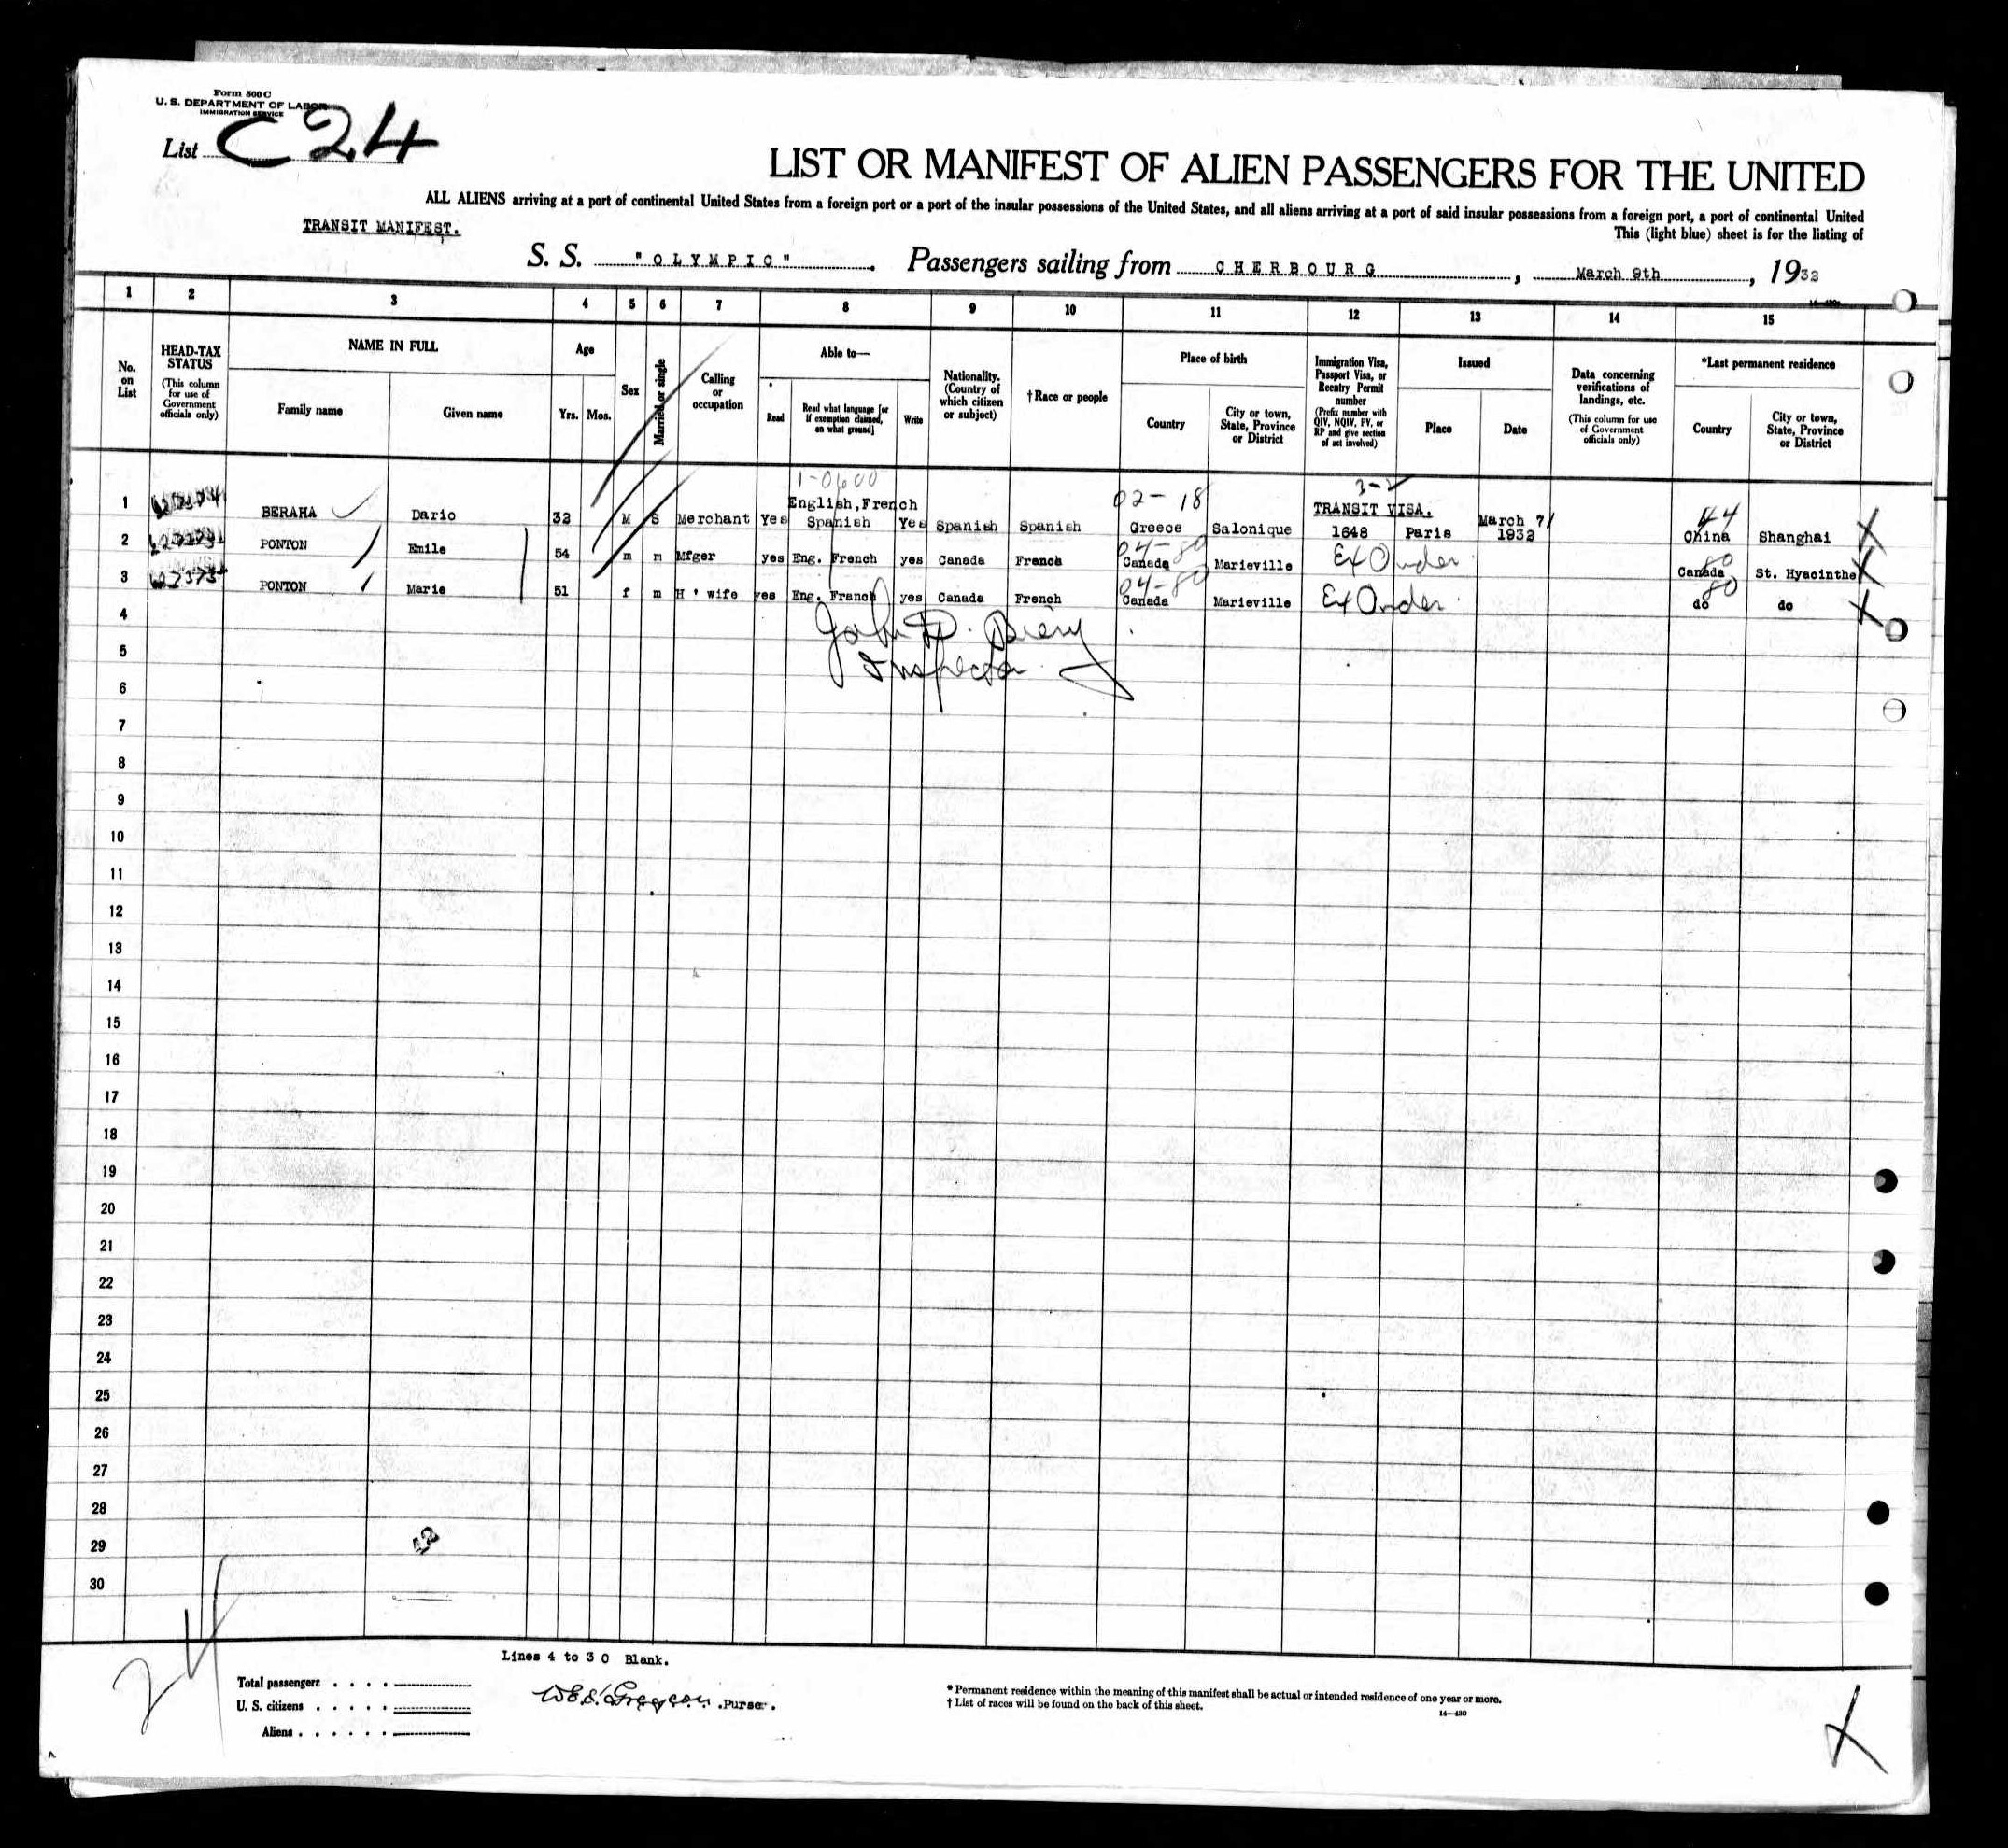 Form 500 C
U. S. DEPARTMENT OF LABOR
IMMIGRATION SERVICE
List C 24
LIST OR MANIFEST OF ALIEN PASSENGERS FOR THE UNITED
ALL ALIENS arriving at a port of continental United States from a foreign port or a port of the insular possessions of the United States, and all aliens arriving at a port of said insular possessions from a foreign port, a port of continental United
TRANSIT MANIFEST.
This (light blue) sheet is for the listing of
S. S. "OLYMPIC". Passengers sailing from CHERBOURG, March 9th, 1932
1 2 3 4 5 6 7 8 9 10 11 12 13 14 15
No. on List
HEAD-TAX STATUS
(This column for use of Government officials only)
NAME IN FULL
Family name
Given name
Age
Yrs. Mos.
Sex
Married or single
Calling or occupation
Able to—
Read
Read what language [or if exemption claimed, on what ground]
Write
Nationality. (Country of which citizen or subject)
†Race or people
Place of birth
Country
City or town, State, Province or District
Immigration Visa, Passport Visa, or Reentry Permit number
(Prefix number with QIV, NQIV, PV, or RP and give section of act involved)
Issued
Place
Date
Data concerning verifications of landings, etc.
(This column for use of Government officials only)
*Last permanent residence
Country
City or town, State, Province or District
1-0600
02-18
3-2
44
1 BERAHA Dario 32 M S Merchant Yes English, French Spanish Yes Spanish Spanish Greece Salonique TRANSIT VISA. 1648 Paris March 7/ 1932 China Shanghai X
04-80
80
2 PONTON Emile 54 m m Mfger yes Eng. French yes Canada French Canada Marieville Ex Order Canada St. Hyacinthe X
04-80
80
3 PONTON Marie 51 f m H'wife yes Eng. French yes Canada French Canada Marieville Ex Order do do X
4
John D.
Inspector
5
6
7
8
9
10
11
12
13
14
15
16
17
18
19
20
21
22
23
24
25
26
27
28
29
30
24
Lines 4 to 30 Blank.
Total passengers . . . .
U. S. citizens . . . . .
Aliens . . . . . .
.Purser.
* Permanent residence within the meaning of this manifest shall be actual or intended residence of one year or more.
† List of races will be found on the back of this sheet.
14—430
X